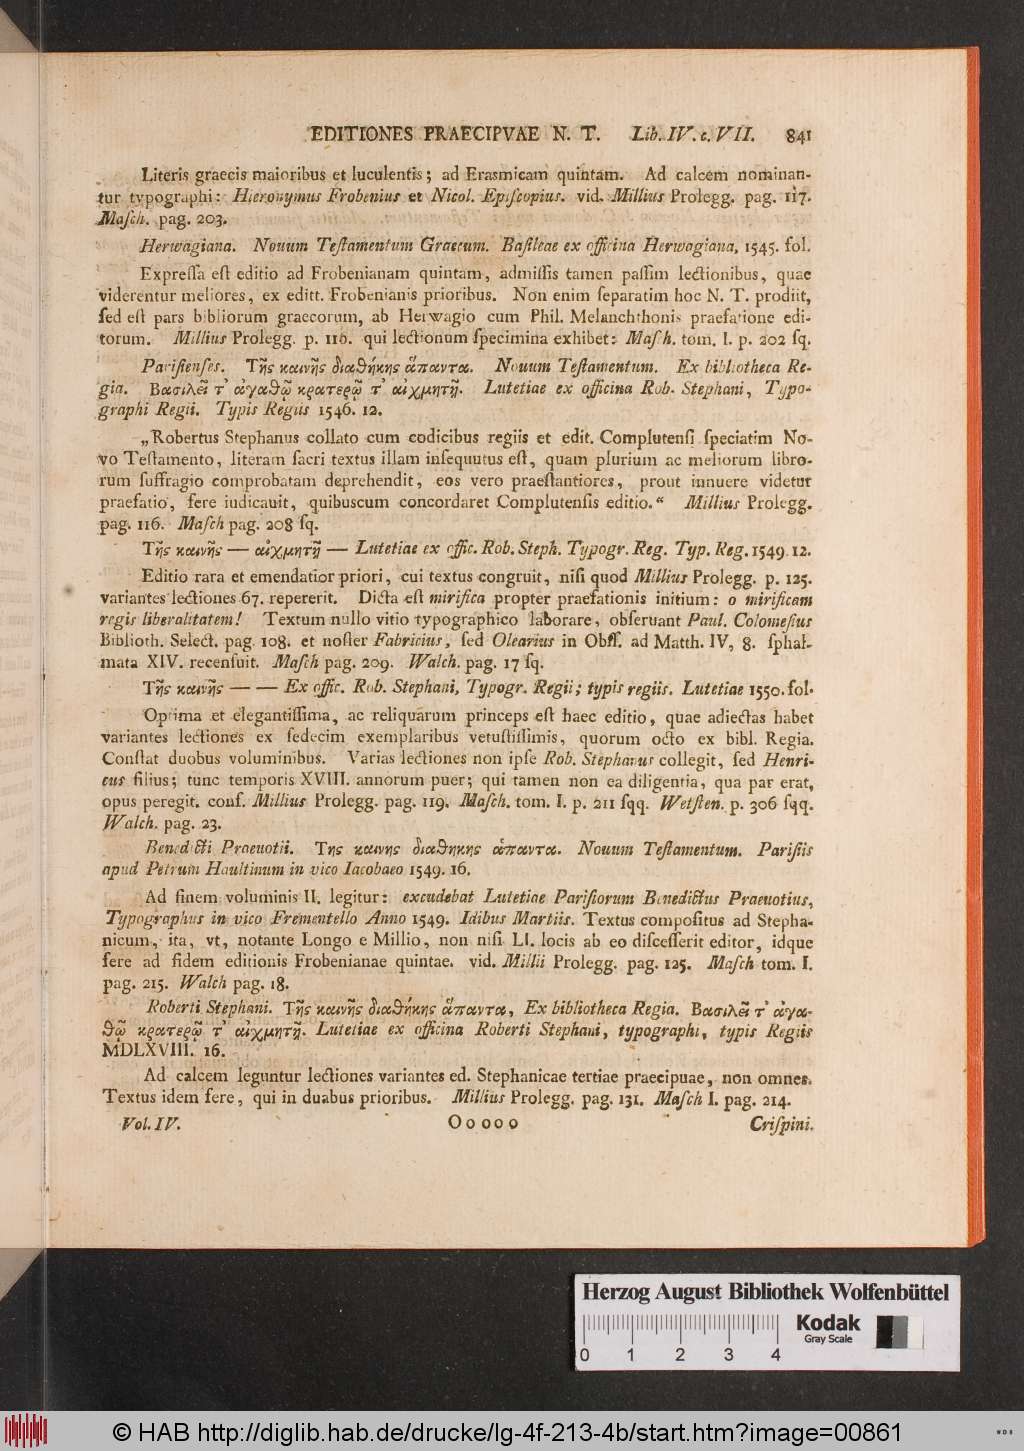 EDITIONES PRAECIPVAE N. T. Lib. IV. c. VII. 841
Literis graecis maioribus et luculentis; ad Erasmicam quintam. Ad calcem nominan-
tur typographi: Hieronymus Frobenius et Nicol. Epiſcopius. vid. Millius Prolegg. pag. 117.
Maſch. pag. 203.
Herwagiana. Nouum Teſtamentum Graecum. Baſileae ex officina Herwagiana, 1545. fol.
Expreſſa eſt editio ad Frobenianam quintam, admiſſis tamen paſſim lectionibus, quae
viderentur meliores, ex editt. Frobenianis prioribus. Non enim ſeparatim hoc N. T. prodiit,
ſed eſt pars bibliorum graecorum, ab Herwagio cum Phil. Melanchthonis praefatione edi-
torum. Millius Prolegg. p. 116. qui lectionum ſpecimina exhibet: Maſch. tom. I. p. 202 ſq.
Pariſienſes. Τῆς καινῆς διαθήκης ἅπαντα. Nouum Teſtamentum. Ex bibliotheca Re-
gia. Βασιλεῖ τ' ἀγαθῷ κρατερῷ τ' αἰχμητῇ. Lutetiae ex officina Rob. Stephani, Typo-
graphi Regii. Typis Regiis 1546. 12.
„Robertus Stephanus collato cum codicibus regiis et edit. Complutenſi ſpeciatim No-
vo Teſtamento, literam ſacri textus illam inſequutus eſt, quam plurium ac meliorum libro-
rum ſuffragio comprobatam deprehendit, eos vero praeſtantiores, prout innuere videtur
praefatio, fere iudicauit, quibuscum concordaret Complutenſis editio.“ Millius Prolegg.
pag. 116. Maſch pag. 208 ſq.
Τῆς καινῆς — αἰχμητῇ — Lutetiae ex offic. Rob. Steph. Typogr. Reg. Typ. Reg. 1549. 12.
Editio rara et emendatior priori, cui textus congruit, niſi quod Millius Prolegg. p. 125.
variantes lectiones 67. repererit. Dicta eſt mirifica propter praefationis initium: o mirificam
regis liberalitatem! Textum nullo vitio typographico laborare, obſeruant Paul. Colomeſius
Biblioth. Select. pag. 108. et noſter Fabricius, ſed Olearius in Obſſ. ad Matth. IV, 8. ſphal-
mata XIV. recenſuit. Maſch pag. 209. Walch. pag. 17 ſq.
Τῆς καινῆς — — Ex offic. Rob. Stephani, Typogr. Regii; typis regiis. Lutetiae 1550. fol.
Optima et elegantiſſima, ac reliquarum princeps eſt haec editio, quae adiectas habet
variantes lectiones ex ſedecim exemplaribus vetuſtiſſimis, quorum octo ex bibl. Regia.
Conſtat duobus voluminibus. Varias lectiones non ipſe Rob. Stephanus collegit, ſed Henri-
cus filius; tunc temporis XVIII. annorum puer; qui tamen non ea diligentia, qua par erat,
opus peregit. conf. Millius Prolegg. pag. 119. Maſch. tom. I. p. 211 ſqq. Wetſten. p. 306 ſqq.
Walch. pag. 23.
Benedicti Praeuotii. Της καινης διαθηκης ἁπαντα. Nouum Teſtamentum. Pariſiis
apud Petrum Haultinum in vico Iacobaeo 1549. 16.
Ad finem voluminis II. legitur: excudebat Lutetiae Pariſiorum Benedictus Praeuotius,
Typographus in vico Frementello Anno 1549. Idibus Martiis. Textus compoſitus ad Stepha-
nicum, ita, vt, notante Longo e Millio, non niſi LI. locis ab eo diſceſſerit editor, idque
fere ad fidem editionis Frobenianae quintae. vid. Millii Prolegg. pag. 125. Maſch tom. I.
pag. 215. Walch pag. 18.
Roberti Stephani. Τῆς καινῆς διαθήκης ἅπαντα, Ex bibliotheca Regia. Βασιλεῖ τ' ἀγα-
θῷ κρατερῷ τ' αἰχμητῇ. Lutetiae ex officina Roberti Stephani, typographi, typis Regiis
MDLXVIII. 16.
Ad calcem leguntur lectiones variantes ed. Stephanicae tertiae praecipuae, non omnes.
Textus idem fere, qui in duabus prioribus. Millius Prolegg. pag. 131. Maſch I. pag. 214.
Vol. IV. Ooooo Criſpini.
Herzog August Bibliothek Wolfenbüttel
Kodak
Gray Scale
0 1 2 3 4
© HAB http://diglib.hab.de/drucke/lg-4f-213-4b/start.htm?image=00861